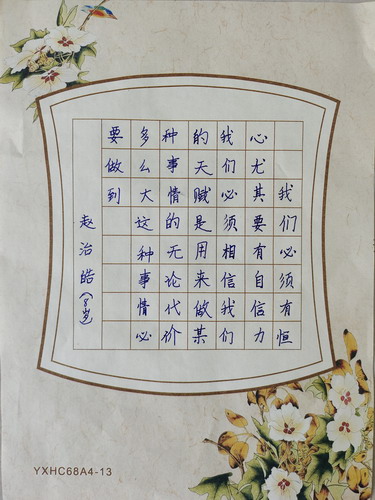 我们必须有恒
心尤其要有自信力
我们必须相信我们
的天赋是用来做某
种事情的无论代价
多么大这种事情必
要做到
赵治皓(8岁)
YXHC68A4-13